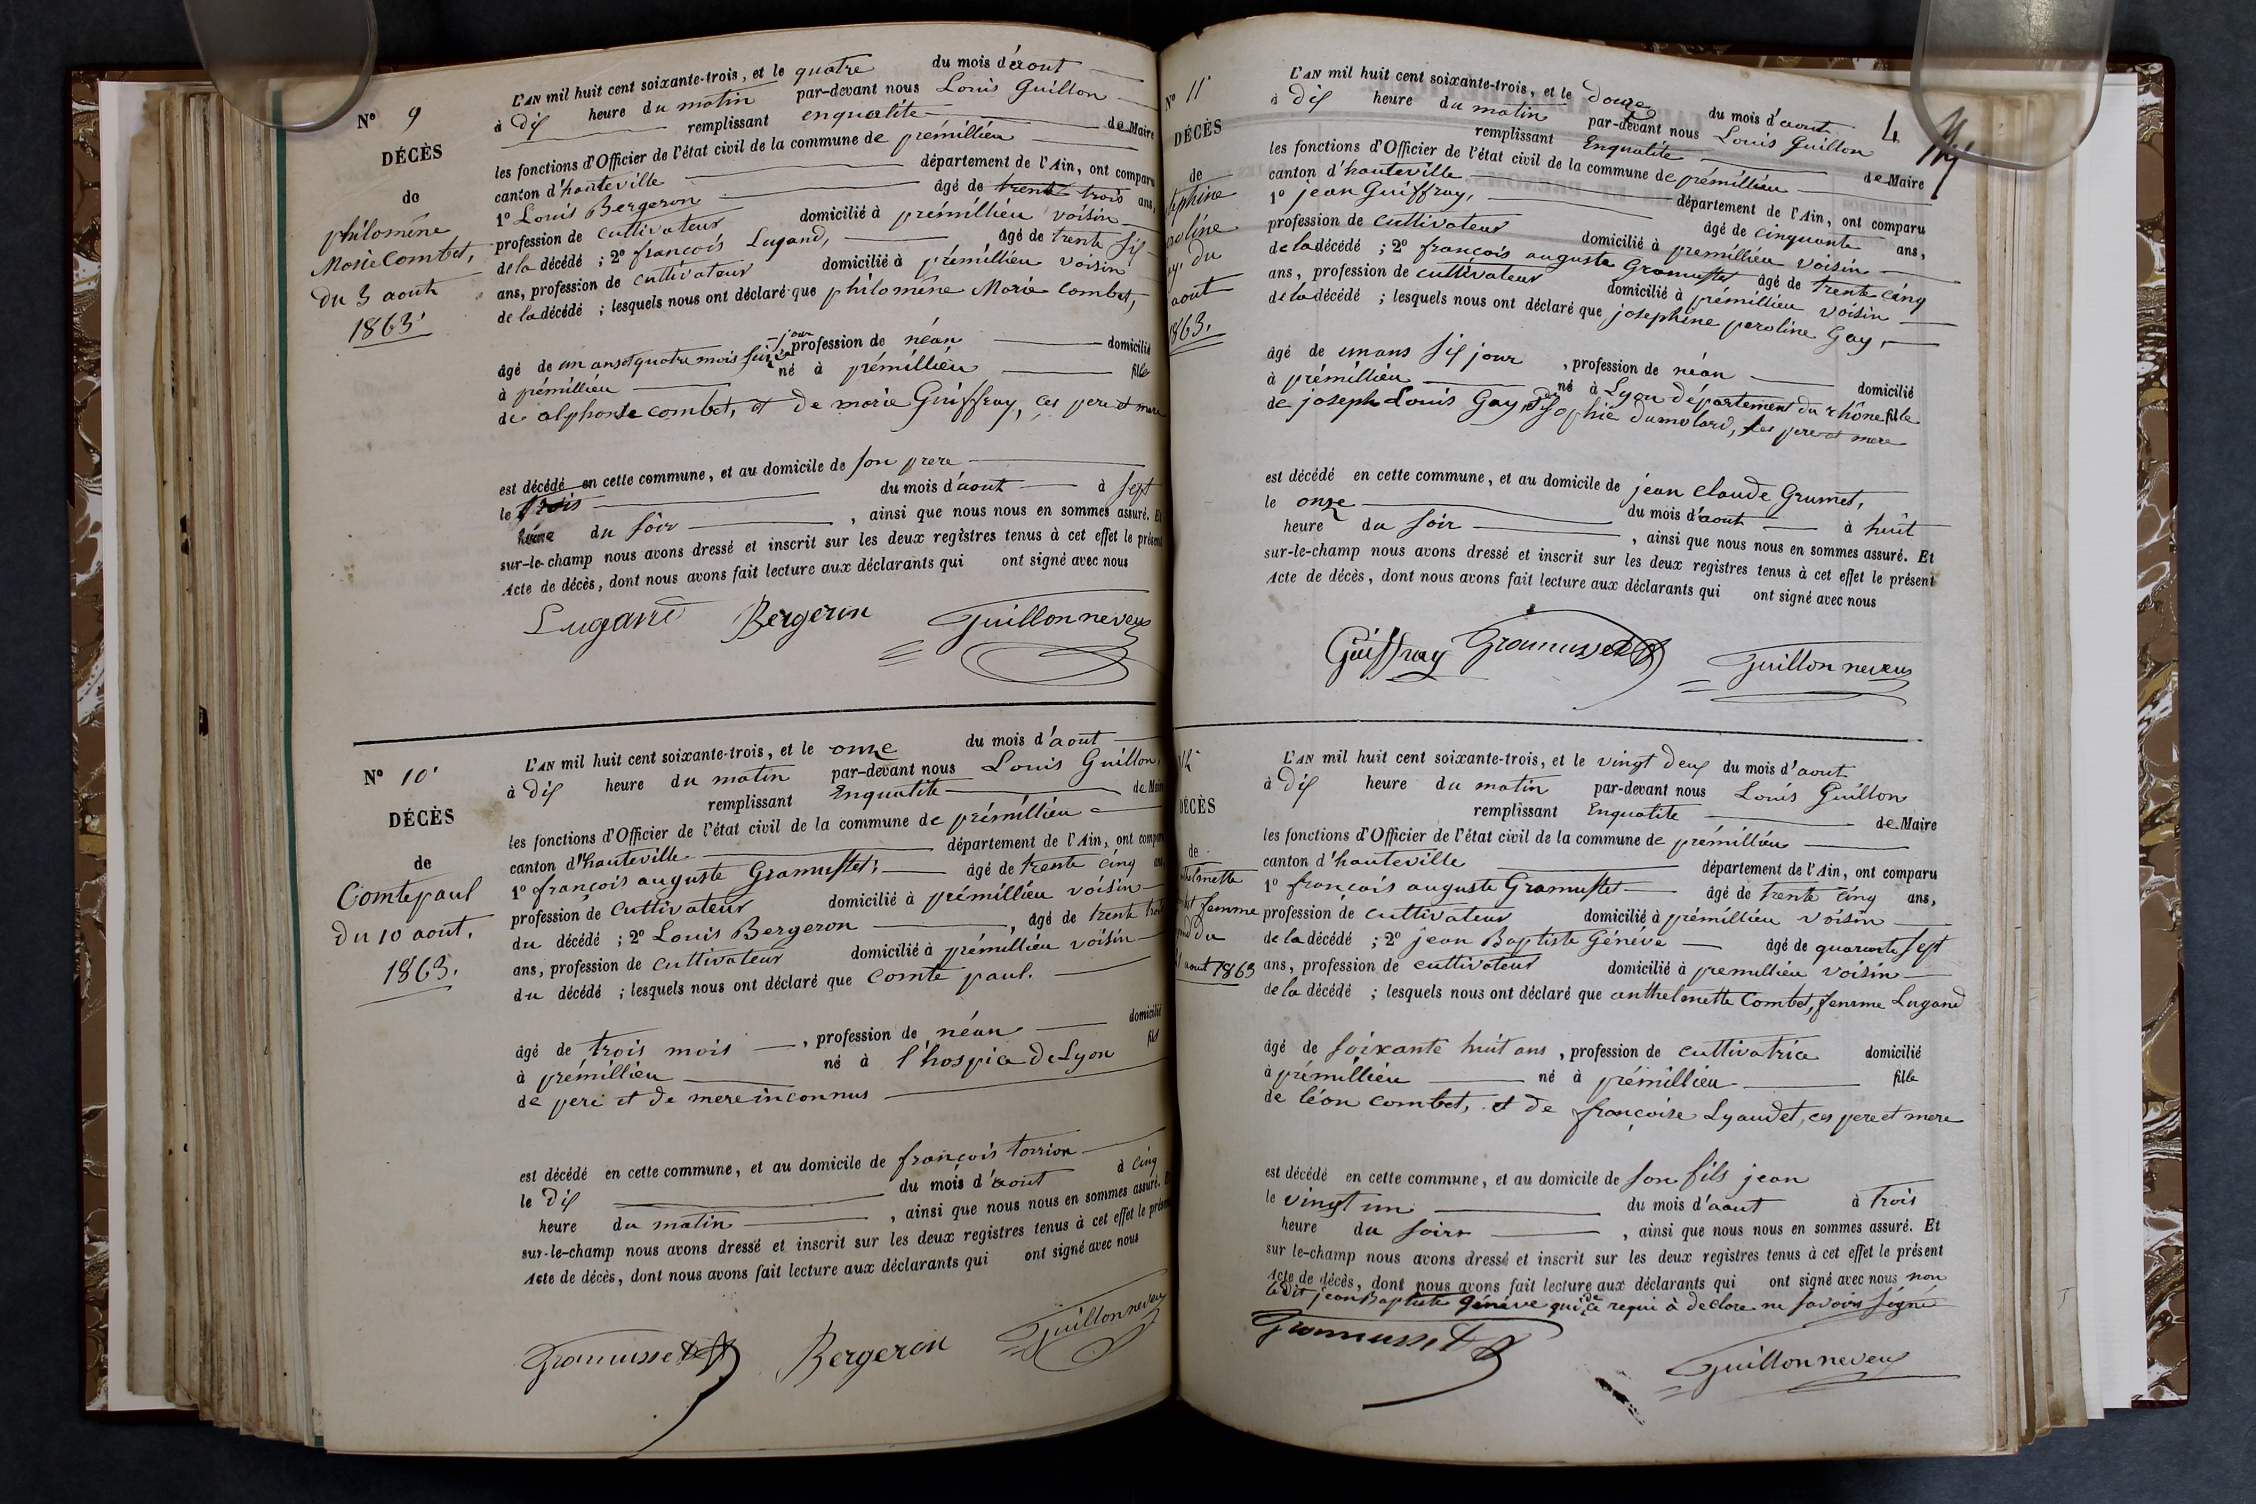 Nº 9
DÉCÈS
de
philomène
Marie Combet,
du 3 aout
1863.
L'AN mil huit cent soixante-trois, et le quatre du mois d'aout
à dix heure du matin par-devant nous Louis Guillon
remplissant enqualité de Maire
les fonctions d'Officier de l'état civil de la commune de prémillieu
canton d'hauteville département de l'Ain, ont comparu
1º Louis Bergeron âgé de trente trois ans,
profession de cultivateur domicilié à prémillieu voisin
de la décédé ; 2º françois Lugand, âgé de trente six
ans, profession de cultivateur domicilié à prémillieu voisin
de la décédé ; lesquels nous ont déclaré que philomène Marie Combet,
âgé de un ans et quatre mois seize jour profession de néan domicilié
à prémillieu né à prémillieu fille
de alphonse combet, et de marie Guiffray, ces pere et mere
est décédé en cette commune, et au domicile de son pere
le trois du mois d'aout à sept
heure du soir , ainsi que nous nous en sommes assuré. Et
sur-le-champ nous avons dressé et inscrit sur les deux registres tenus à cet effet le présent
Acte de décès, dont nous avons fait lecture aux déclarants qui ont signé avec nous
Lugand Bergeron Guillon neveu
Nº 10
DÉCÈS
de
Comte paul
du 10 aout.
1863.
L'AN mil huit cent soixante-trois, et le onze du mois d'aout
à dix heure du matin par-devant nous Louis Guillon,
remplissant Enqualité de Maire
les fonctions d'Officier de l'état civil de la commune de prémillieu
canton d'hauteville département de l'Ain, ont comparu
1º françois auguste Gramusset, âgé de trente cinq ans
profession de cultivateur domicilié à prémillieu voisin
du décédé ; 2º Louis Bergeron , âgé de trente trois
ans, profession de cultivateur domicilié à prémillieu voisin
du décédé ; lesquels nous ont déclaré que comte paul.
âgé de trois mois , profession de néan domicilié
à prémillieu né à l'hospice de Lyon fils
de pere et de mere inconnus
est décédé en cette commune, et au domicile de françois
le dix du mois d'aout à cinq
heure du matin , ainsi que nous nous en sommes assuré. Et
sur-le-champ nous avons dressé et inscrit sur les deux registres tenus à cet effet le présent
Acte de décès, dont nous avons fait lecture aux déclarants qui ont signé avec nous
Gramusset Bergeron Guillon neveu
4
Nº 11
DÉCÈS
de
sephine
roline
ay. du
aout
1863.
L'AN mil huit cent soixante-trois, et le douze du mois d'aout
à dix heure du matin par-devant nous Louis Guillon
remplissant Enqualité de Maire
les fonctions d'Officier de l'état civil de la commune de prémillieu
canton d'hauteville département de l'Ain, ont comparu
1º jean Guiffray, âgé de cinquante ans,
profession de cultivateur domicilié à premillieu voisin
de la décédé ; 2º françois auguste Gramusset âgé de trente cinq
ans, profession de cultivateur domicilié à prémillieu voisin
de la décédé ; lesquels nous ont déclaré que josephine peroline Gay,
âgé de un ans six jour , profession de néan domicilié
à prémillieu né à Lyon département du rhône fille
de joseph Louis Gay, et de Sophie dumolard, ses pere et mere
est décédé en cette commune, et au domicile de jean claude Grumet,
le onze du mois d'aout à huit
heure du soir , ainsi que nous nous en sommes assuré. Et
sur-le-champ nous avons dressé et inscrit sur les deux registres tenus à cet effet le présent
Acte de décès, dont nous avons fait lecture aux déclarants qui ont signé avec nous
Guiffray Gramusset Guillon neveu
12
DÉCÈS
de
thelmette
femme
du
21 aout 1863
L'AN mil huit cent soixante-trois, et le vingt deux du mois d'aout
à dix heure du matin par-devant nous Louis Guillon
remplissant Enqualite de Maire
les fonctions d'Officier de l'état civil de la commune de prémillieu
canton d'hauteville département de l'Ain, ont comparu
1º françois auguste Gramusset âgé de trente cinq ans,
profession de cultivateur domicilié à prémillieu voisin
de la décédé ; 2º jean Baptiste Généve âgé de quarante sept
ans, profession de cultivateur domicilié à premillieu voisin
de la décédé ; lesquels nous ont déclaré que anthelmette Combet, femme Lugand
âgé de soixante huit ans , profession de cultivatrice domicilié
à prémillieu né à prémillieu fille
de léon combet, et de françoise Lyaudet, ces pere et mere
est décédé en cette commune, et au domicile de son fils jean
le vingt un du mois d'aout à trois
heure du soir , ainsi que nous nous en sommes assuré. Et
sur le-champ nous avons dressé et inscrit sur les deux registres tenus à cet effet le présent
Acte de décès, dont nous avons fait lecture aux déclarants qui ont signé avec nous non
le dit jean Baptiste Généve qui de ce requi à déclare ne savoir signé
Gramusset Guillon neveu